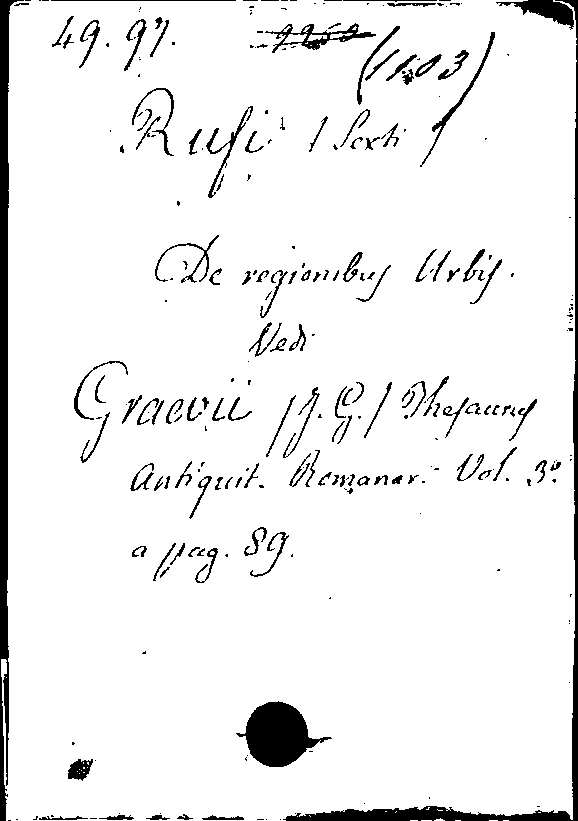 49. 97. 2250 (1103)
Rufi (Sexti)
De regionibus Urbis.
Vedi
Graevii (J. G.) Thesaurus
Antiquit. Romanar. Vol. 3º
a pag. 89.